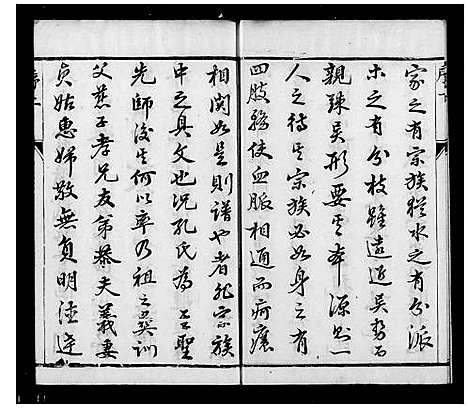 家之有宗族猶水之有分派
木之有分枝雖遠近異勢
親疎異形要其本源則一
人之待其宗族必如身之有
四肢務使血脈相通而疴癢
相関如是則譜也者非宗族
中之具文也況孔氏為至聖
先師後其何以率乃祖之彛訓
父慈子孝兄友弟恭夫義妻
貞姑惠婦敬無負明德達